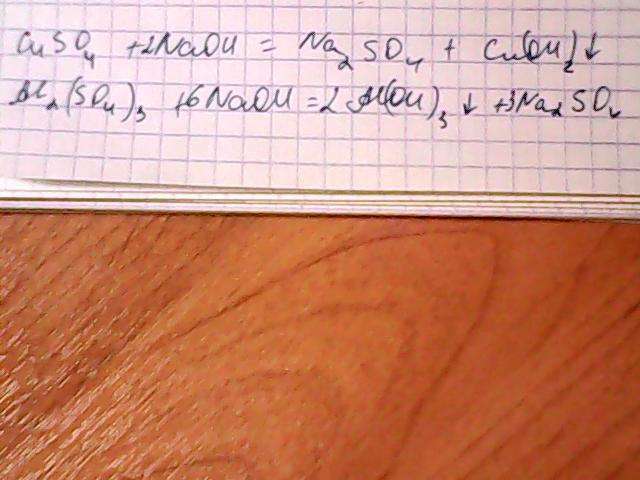 CuSO₄ +2NaOH = Na₂SO₄ + Cu(OH)₂↓
Al₂(SO₄)₃ +6NaOH =2Al(OH)₃↓ +3Na₂SO₄